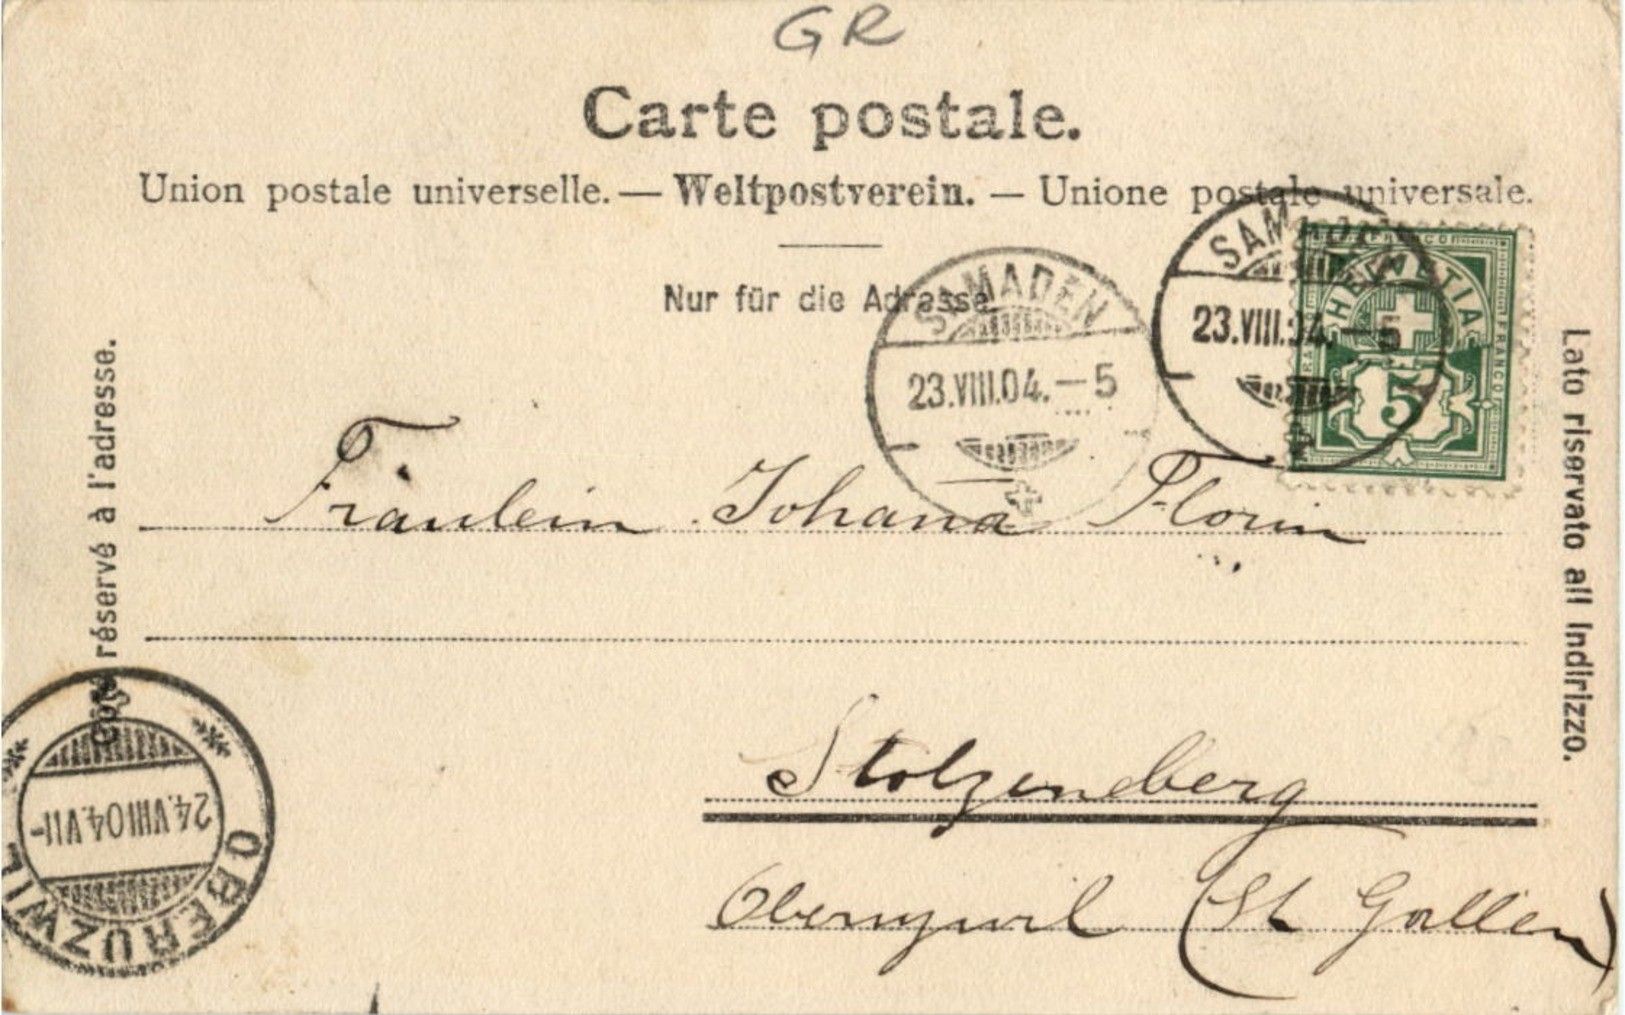 GR
Carte postale.
Union postale universelle. — Weltpostverein. — Unione postale universale.
Nur für die Adresse
SAMADEN
23.VIII.04.—5
SAMADEN
23.VIII.04.—5
FRANCO
HELVETIA
FRANCO
5
réservé à l'adresse.
Lato riservato all Indirizzo.
Fräulein Johana Florin
Stolzenberg
Oberuzwil (St Gallen)
24.VIII04.VII-
OBERUZWIL